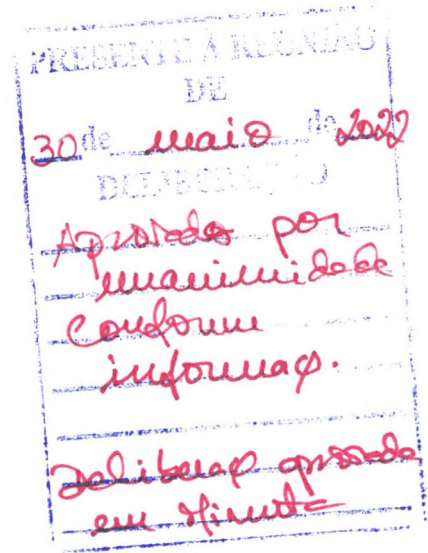 PRESENTE À REUNIÃO
DE
30 de maio de 2022
DELIBERAÇÃO
Aprovada por
unanimidade
Conforme
informaç.
Deliberaç aprovada
em Minuta